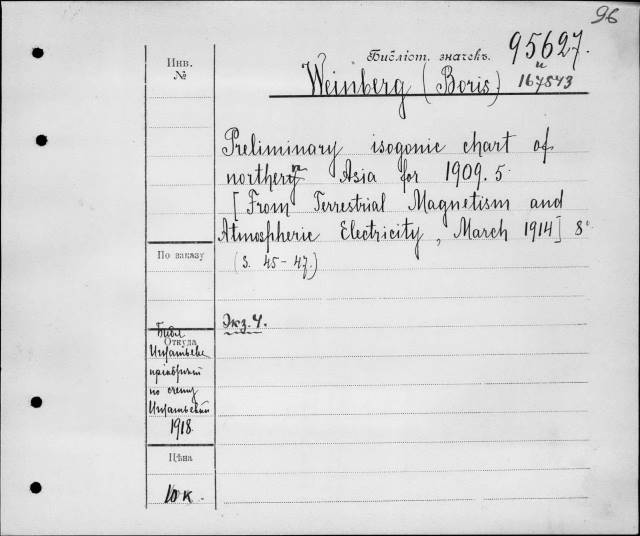 96
Инв.
№
Библіот. значекъ.
95627.
и
167843
Weinberg (Boris)
Preliminary isogonic chart of
northern Asia for 1909.5
[From Terrestrial Magnetism and
Atmospheric Electricity, March 1914] 8°
(S. 45-47.)
По заказу
Экз. 4.
Библ
Откуда
по счету
1918.
Цѣна
10 к.